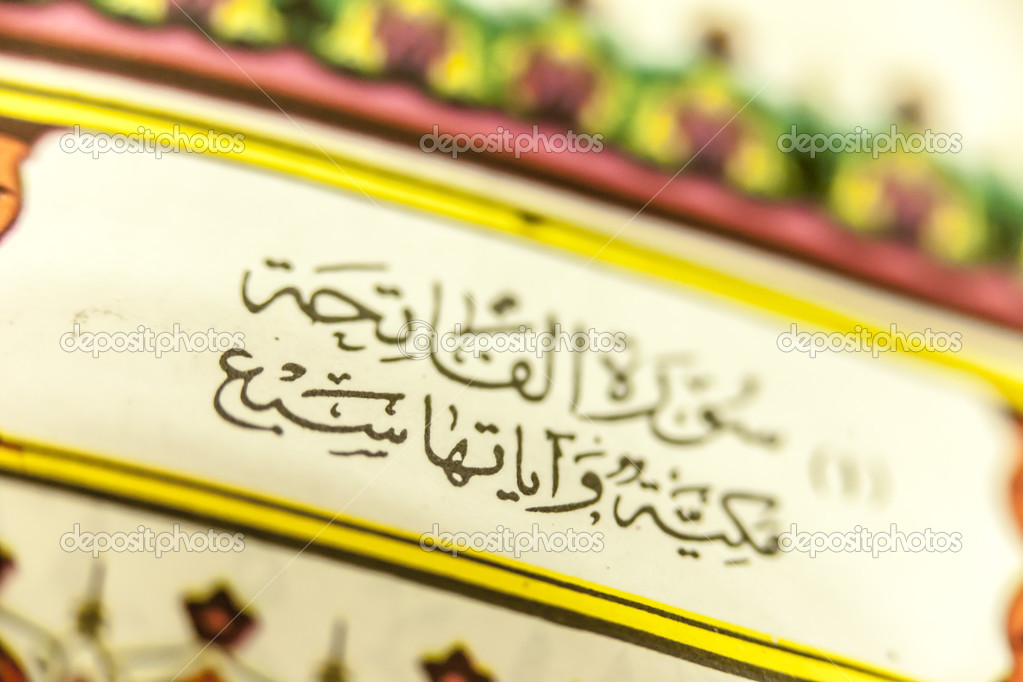 depositphotos depositphotos depositphotos
(١) سُورَةُ الفَاتِحَة
depositphotos depositphotos depositphotos
مَكِيَّةٌ وَآيَاتُهَا سَبْعٌ
depositphotos depositphotos depositphotos